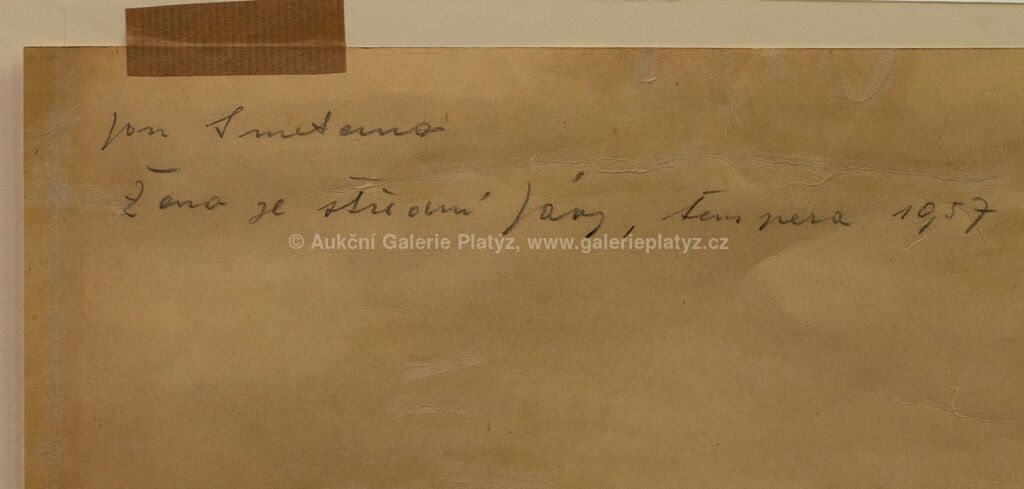 Jan Smetana
Žena ze střední Jávy, tempera 1957
© Aukční Galerie Platýz, www.galerieplatyz.cz